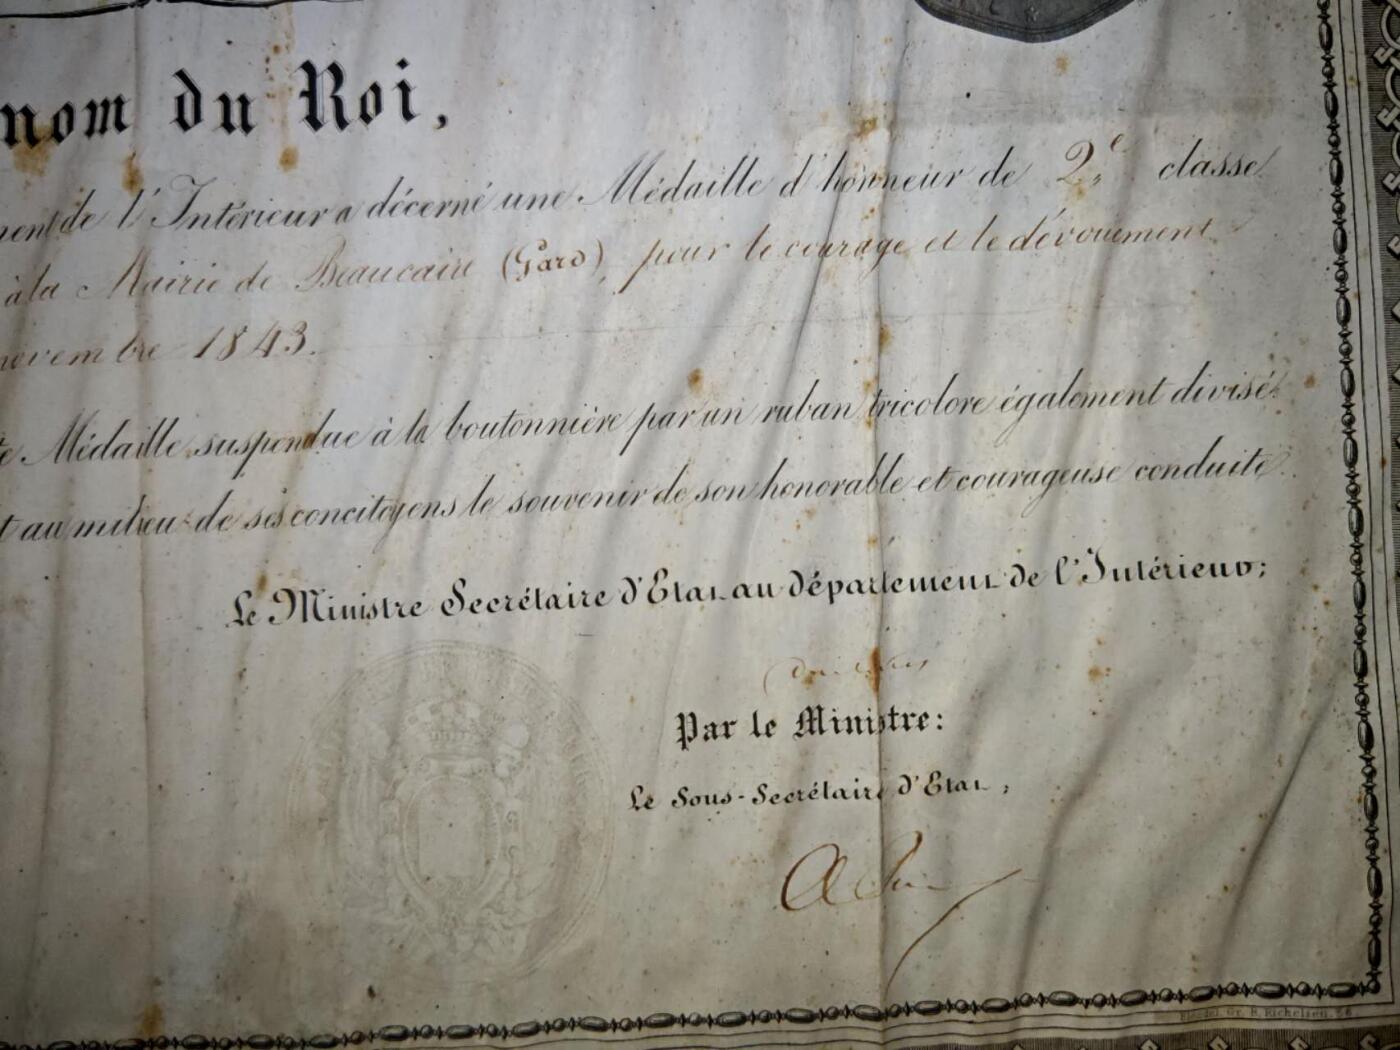 nom du Roi,
de l'Intérieur a décerné une Médaille d'honneur de 2e classe
à la Mairie de Beaucaire (Gard), pour le courage et le dévouement
novembre 1843.
Médaille suspendue à la boutonnière par un ruban tricolore également divisé
au milieu de ses concitoyens le souvenir de son honorable et courageuse conduite
Le Ministre Secrétaire d'Etat au département de l'Intérieur;
Par le Ministre:
Le Sous-Secrétaire d'Etat,
R. Richelieu